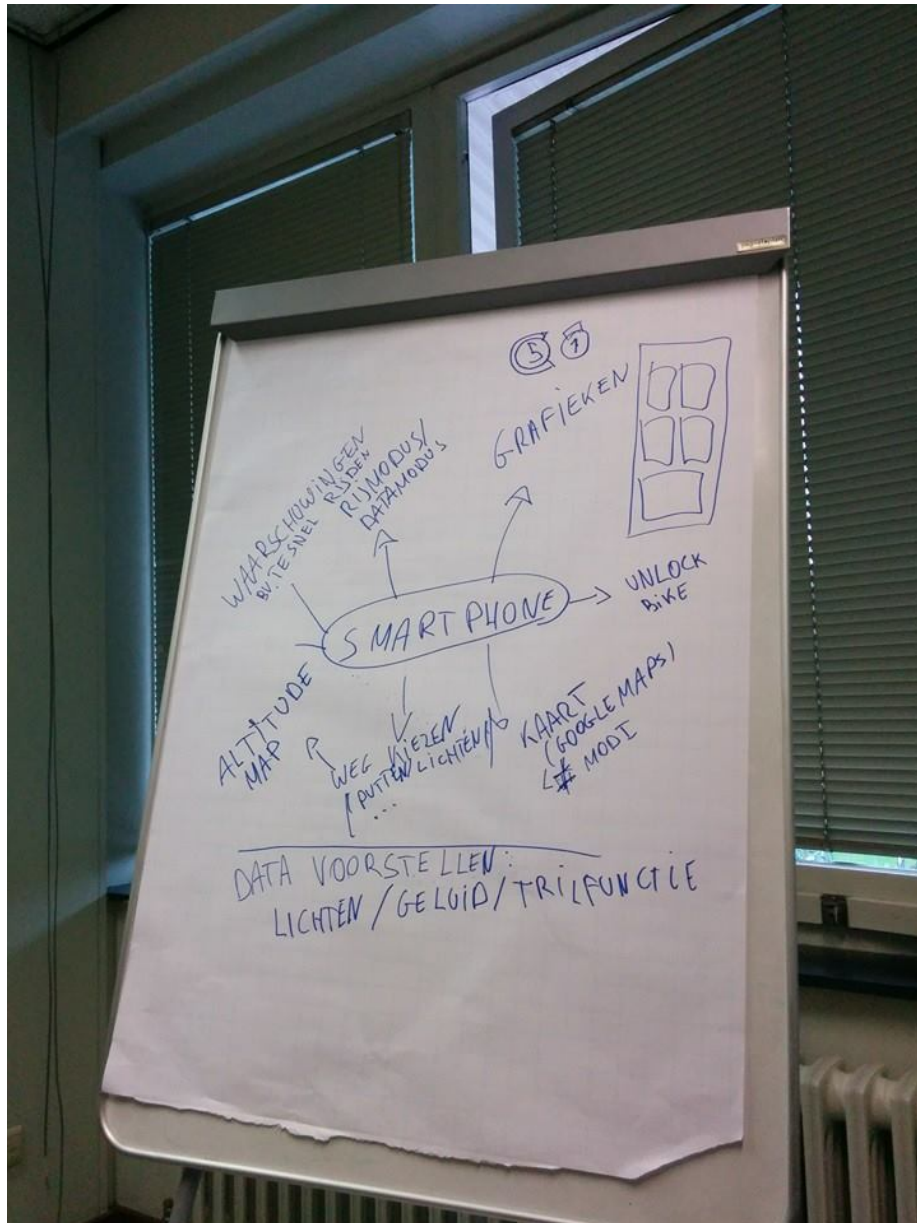 5 1
GRAFIEKEN
WAARSCHOWINGEN
BV. TE SNEL RIJDEN
RIJMODUS/
DATAMODUS
SMARTPHONE
UNLOCK
BIKE
ALTITUDE
MAP
WEG KIEZEN
(PUTTEN/LICHTEN/
...
KAART
(GOOGLE MAPS)
# MODI
DATA VOORSTELLEN:
LICHTEN/GELUID/TRILFUNCTIE